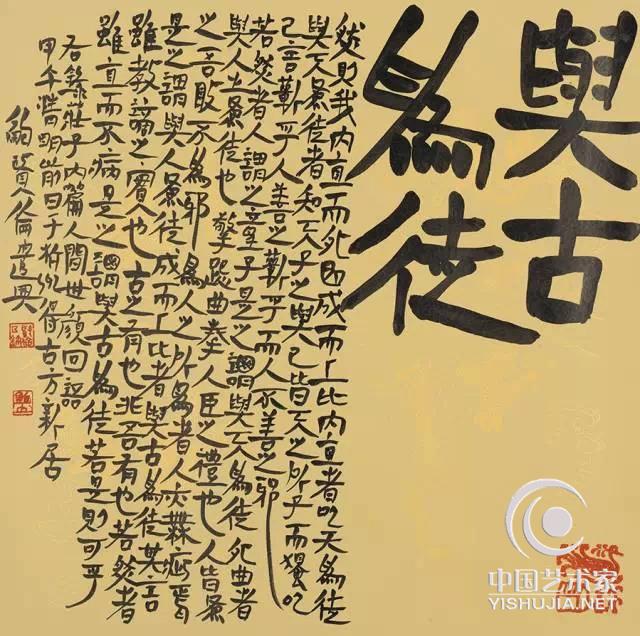 與古
為徒
然則我內直而外曲成而上比內直者以天為徒
與天為徒者知天子之與己皆天之所子而獨以
己言蘄乎人善之蘄乎而人不善之邪
若然者人謂之童子是之謂與天為徒外曲者
與人之為徒也擎跽曲拳人臣之禮也人皆為
之吾敢不為邪為人之所為者人亦無疵焉
是之謂與人為徒成而上比者與古為徒其言
雖教謫之實也古之有也非吾有也若然者
雖直而不病是之謂與古為徒若是則可乎
右錄莊子內篇人間世顏回語
甲午清明前日于得古方新居
鮑賢倫
中国艺术家
YISHUJIA.NET